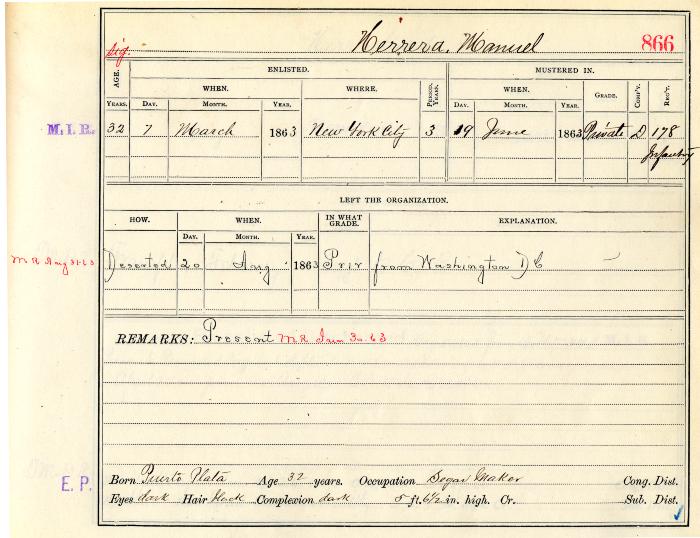 sig. Herrera, Manuel 866
ENLISTED. MUSTERED IN.
AGE. WHEN. WHERE. PERIOD, YEARS. WHEN. GRADE. COMP'Y. REG'T.
YEARS. DAY. MONTH. YEAR. DAY. MONTH. YEAR.
M.I.R. 32 7 March 1863 New York City 3 19 June 1863 Private D 178
Infantry
LEFT THE ORGANIZATION.
HOW. WHEN. IN WHAT GRADE. EXPLANATION.
DAY. MONTH. YEAR.
M R Aug 31-63 Deserted 20 Aug 1863 Priv from Washington D C
REMARKS: Present M R Jun 30-63
Born Puerto Plata Age 32 years. Occupation Segar Maker Cong. Dist.
E. P. Eyes dark Hair black Complexion dark 5 ft. 6½ in. high. Cr. Sub. Dist.